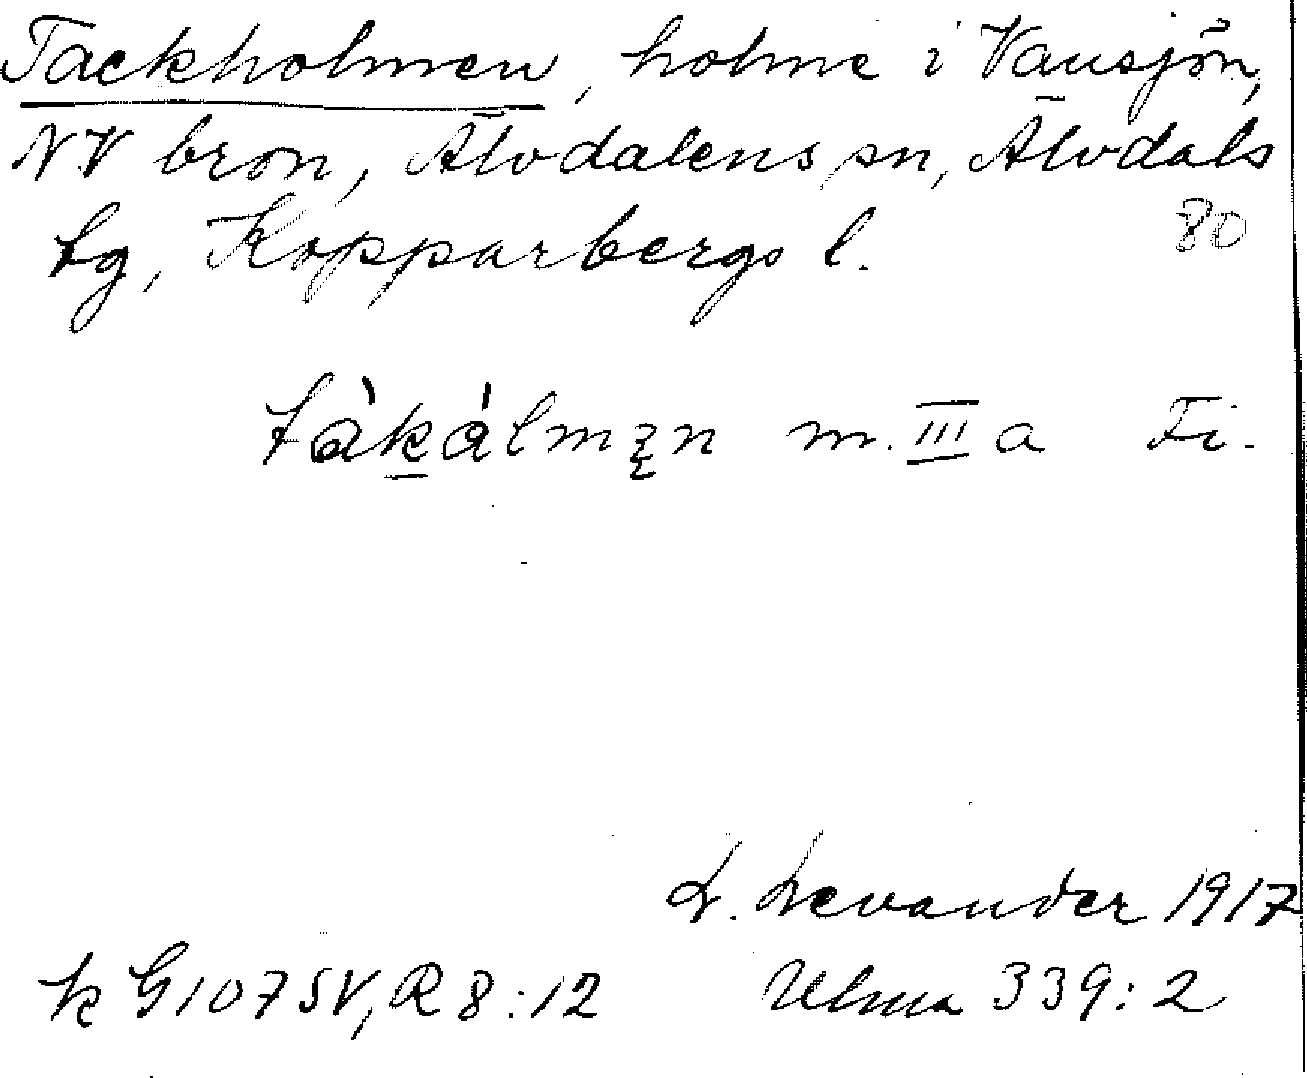 Tackholmen, holme i Vansjön,
NV bron, Älvdalens sn, Älvdals
tg, Kopparbergs l. 80
m. III a Fi.
L. Levander 1917
k G107SV, R8:12 Ulma 339:2